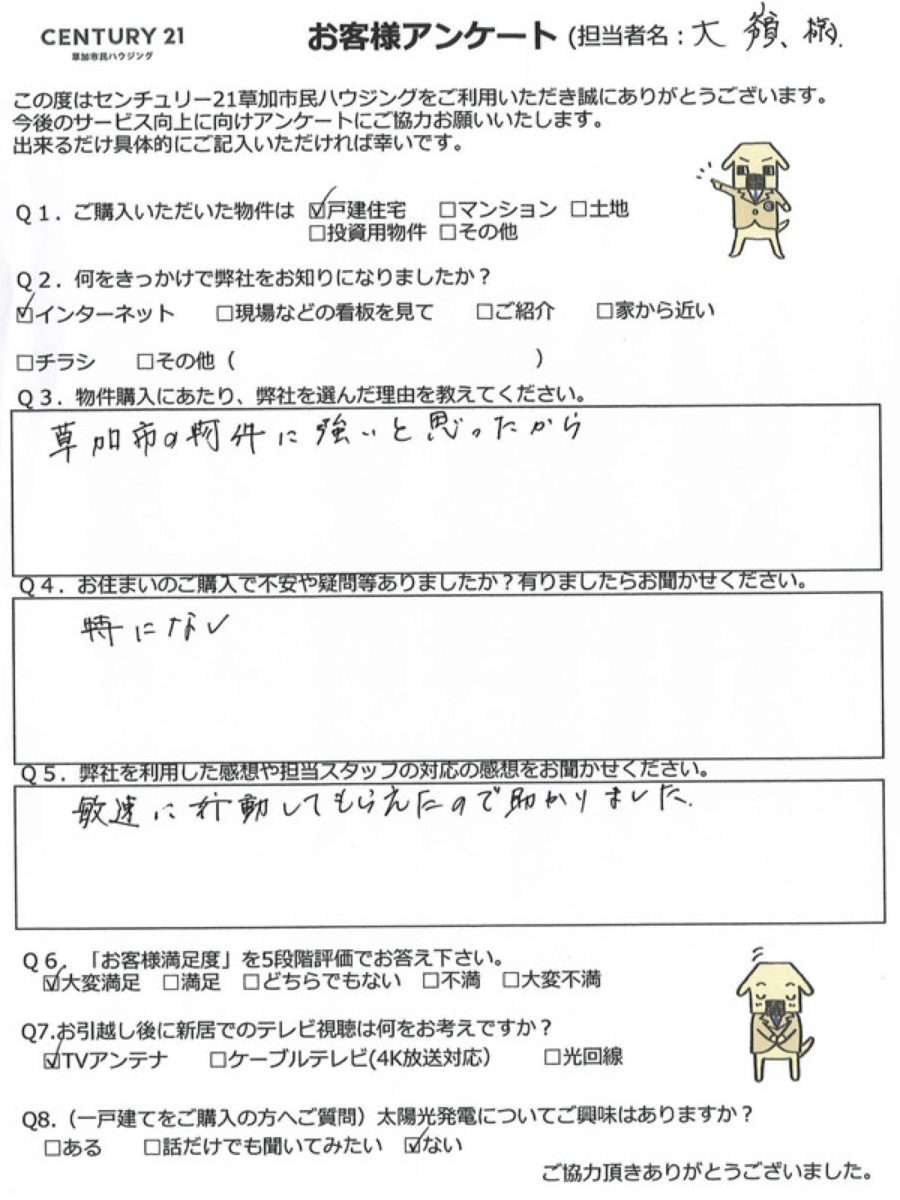 CENTURY 21
草加市民ハウジング
お客様アンケート (担当者名：大
この度はセンチュリー21草加市民ハウジングをご利用いただき誠にありがとうございます。
今後のサービス向上に向けアンケートにご協力お願いいたします。
出来るだけ具体的にご記入いただければ幸いです。
Ｑ１．ご購入いただいた物件は ☑戸建住宅 □マンション □土地
□投資用物件 □その他
Ｑ２．何をきっかけで弊社をお知りになりましたか？
☑インターネット □現場などの看板を見て □ご紹介 □家から近い
□チラシ □その他（ ）
Ｑ３．物件購入にあたり、弊社を選んだ理由を教えてください。
草加市の物件に強いと思ったから
Ｑ４．お住まいのご購入で不安や疑問等ありましたか？有りましたらお聞かせください。
特になし
Ｑ５．弊社を利用した感想や担当スタッフの対応の感想をお聞かせください。
敏速に行動してもらえたので助かりました.
Ｑ６．「お客様満足度」を5段階評価でお答え下さい。
☑大変満足 □満足 □どちらでもない □不満 □大変不満
Q7.お引越し後に新居でのテレビ視聴は何をお考えですか？
☑TVアンテナ □ケーブルテレビ(4K放送対応） □光回線
Q8.（一戸建てをご購入の方へご質問）太陽光発電についてご興味はありますか？
□ある □話だけでも聞いてみたい ☑ない
ご協力頂きありがとうございました。